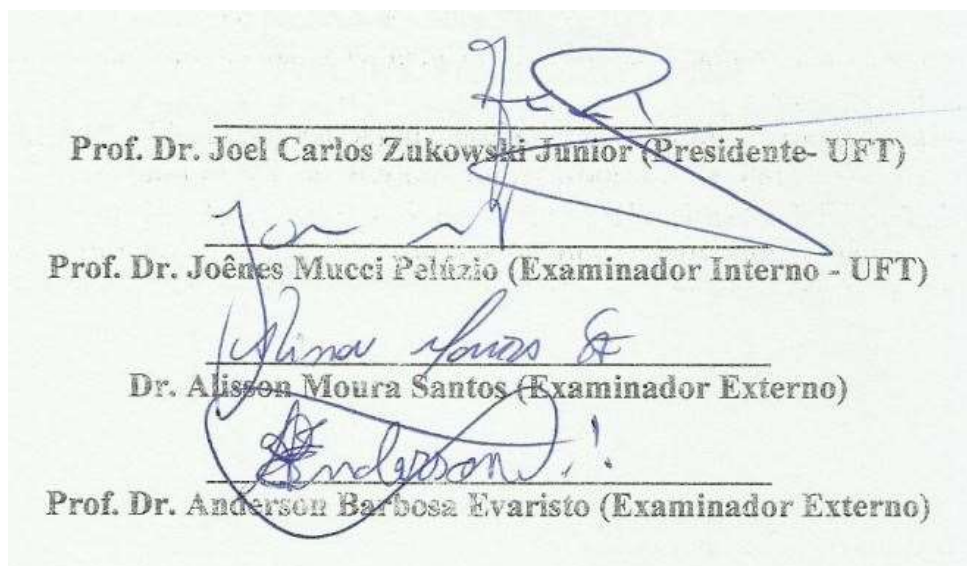 Prof. Dr. Joel Carlos Zukowski Junior (Presidente- UFT)
Prof. Dr. Joênes Mucci Pelúzio (Examinador Interno - UFT)
Dr. Alisson Moura Santos (Examinador Externo)
Anderson
Prof. Dr. Anderson Barbosa Evaristo (Examinador Externo)